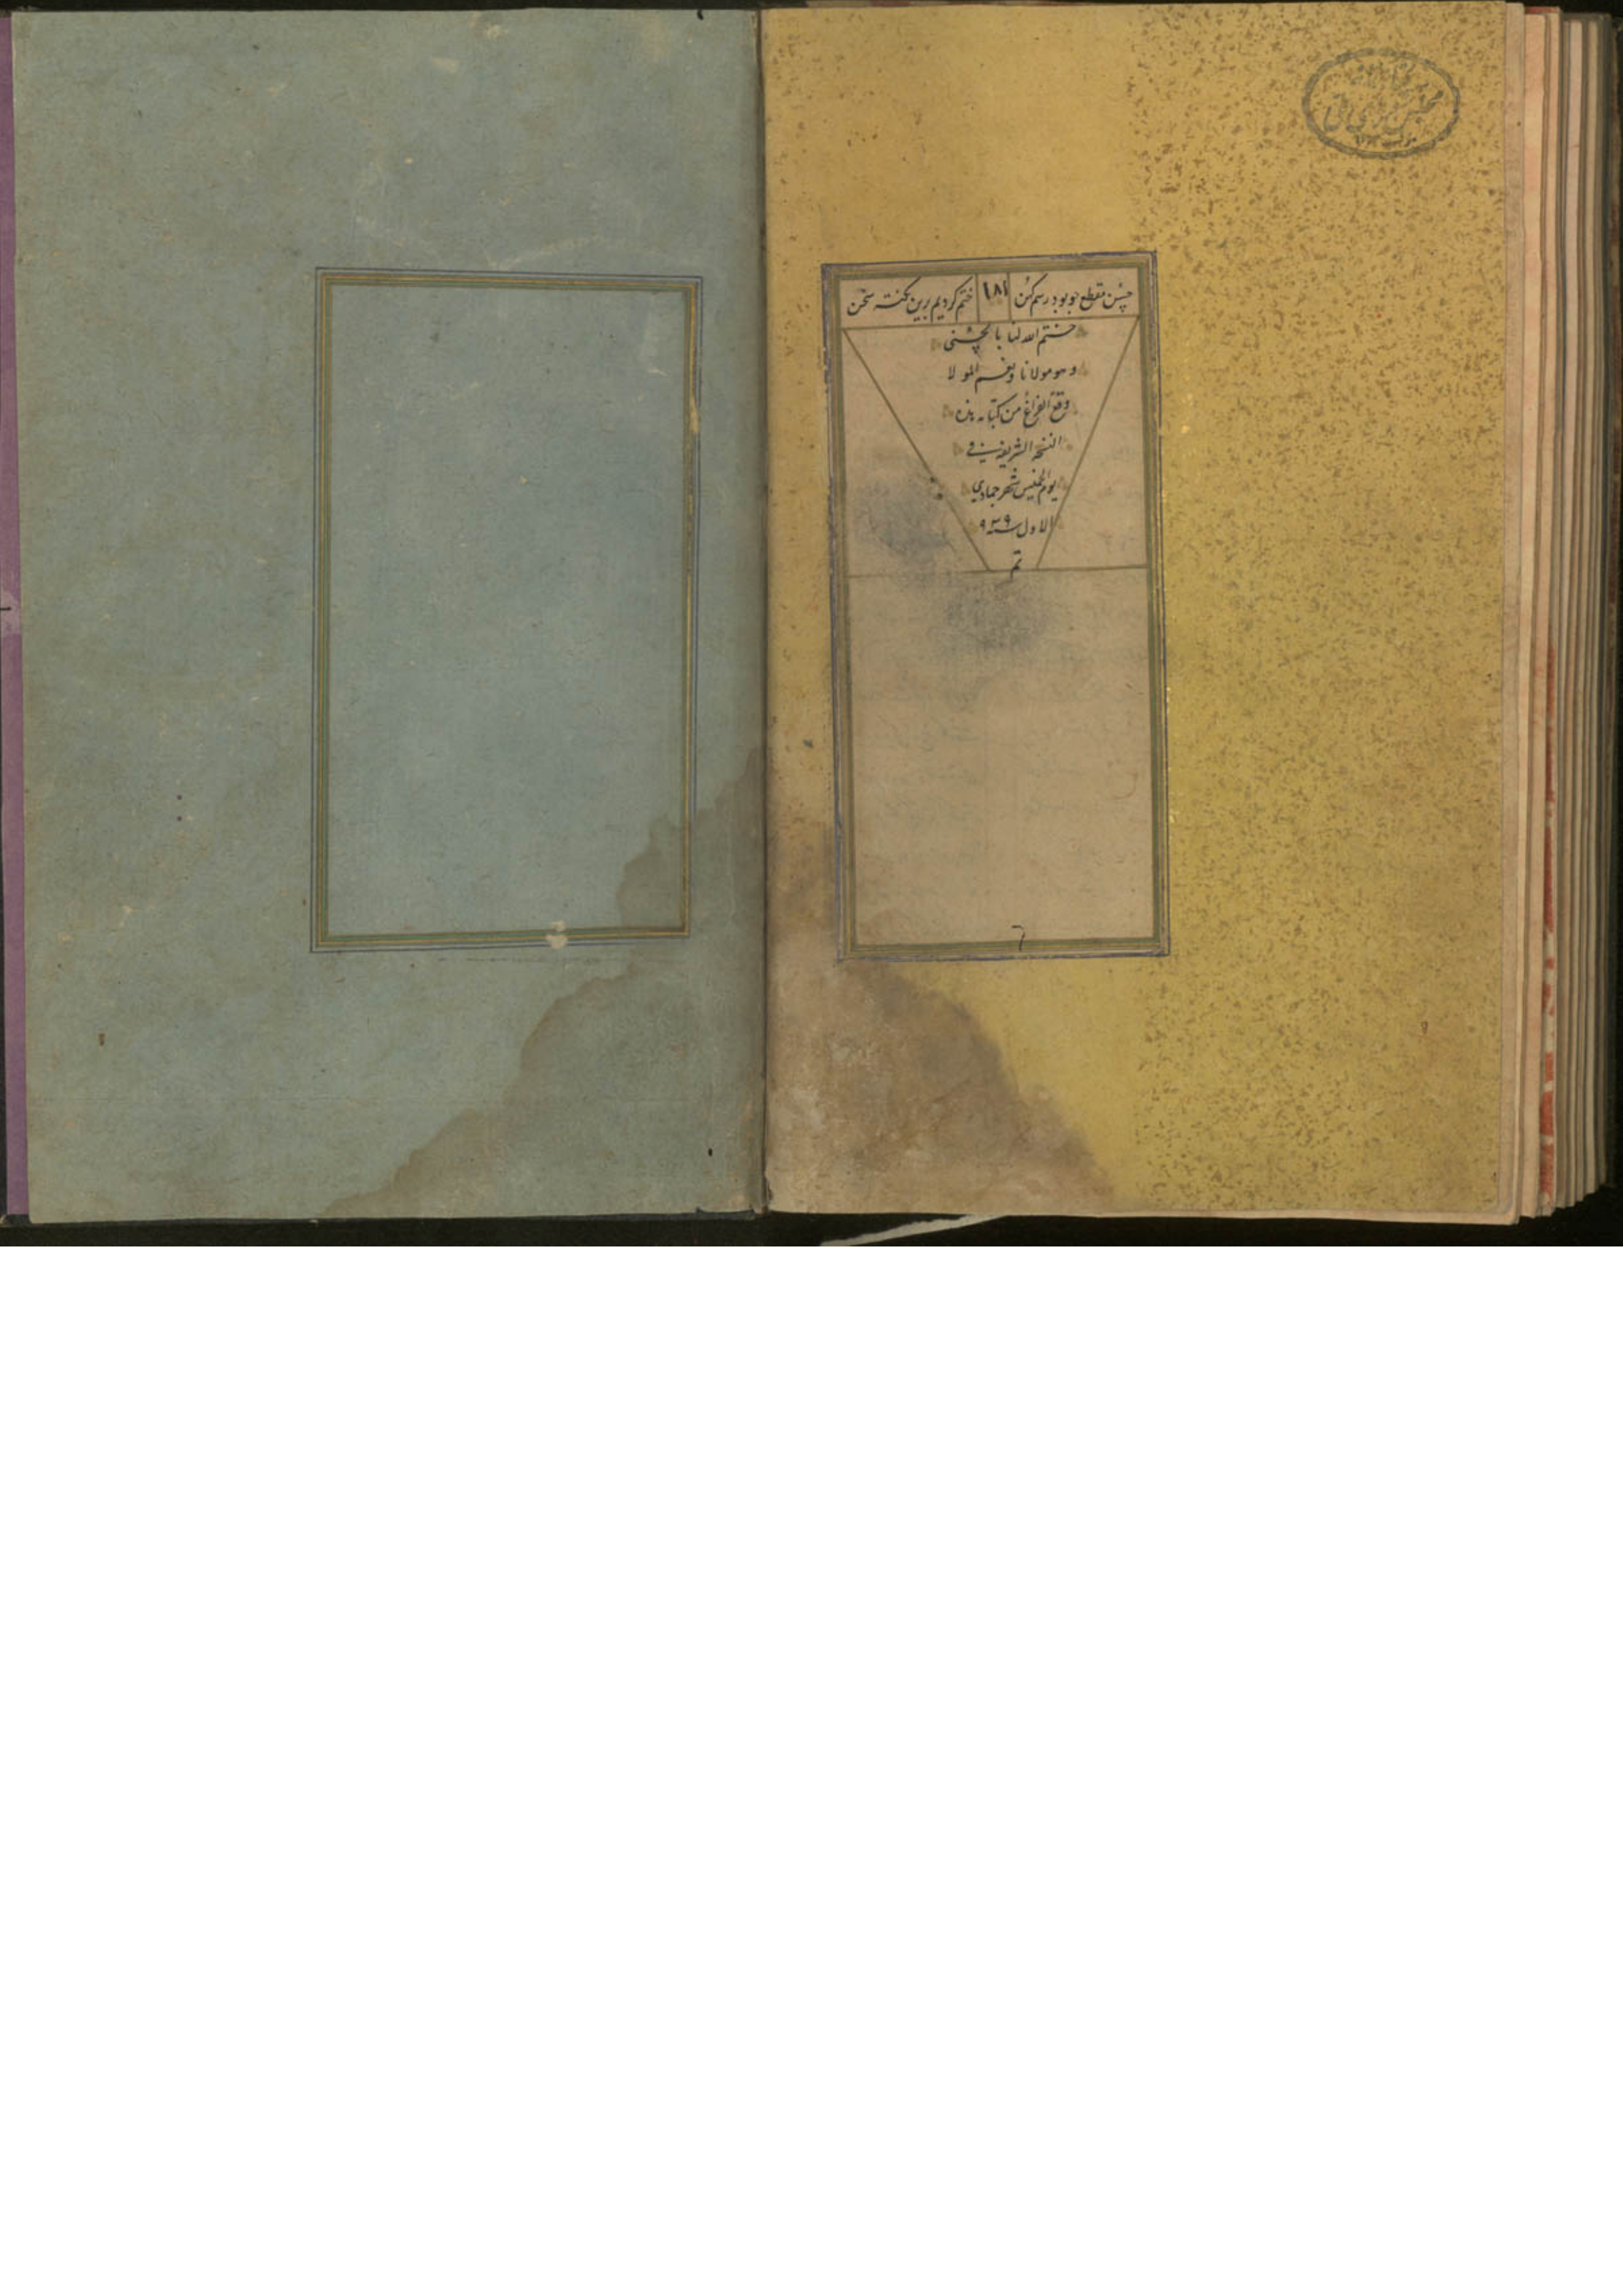 حسن مقطع چو بود رسم کهن ۱۸۱ ختم کردیم برین نکته سخن
ختم الله لنا بالحسنی
وهو مولانا ونعم المولا
وقع الفراغ من کتابه هذه
النسخه الشریفه فی
یوم الخمیس شهر جمادی
الاول سنه ۹۳۹
تم